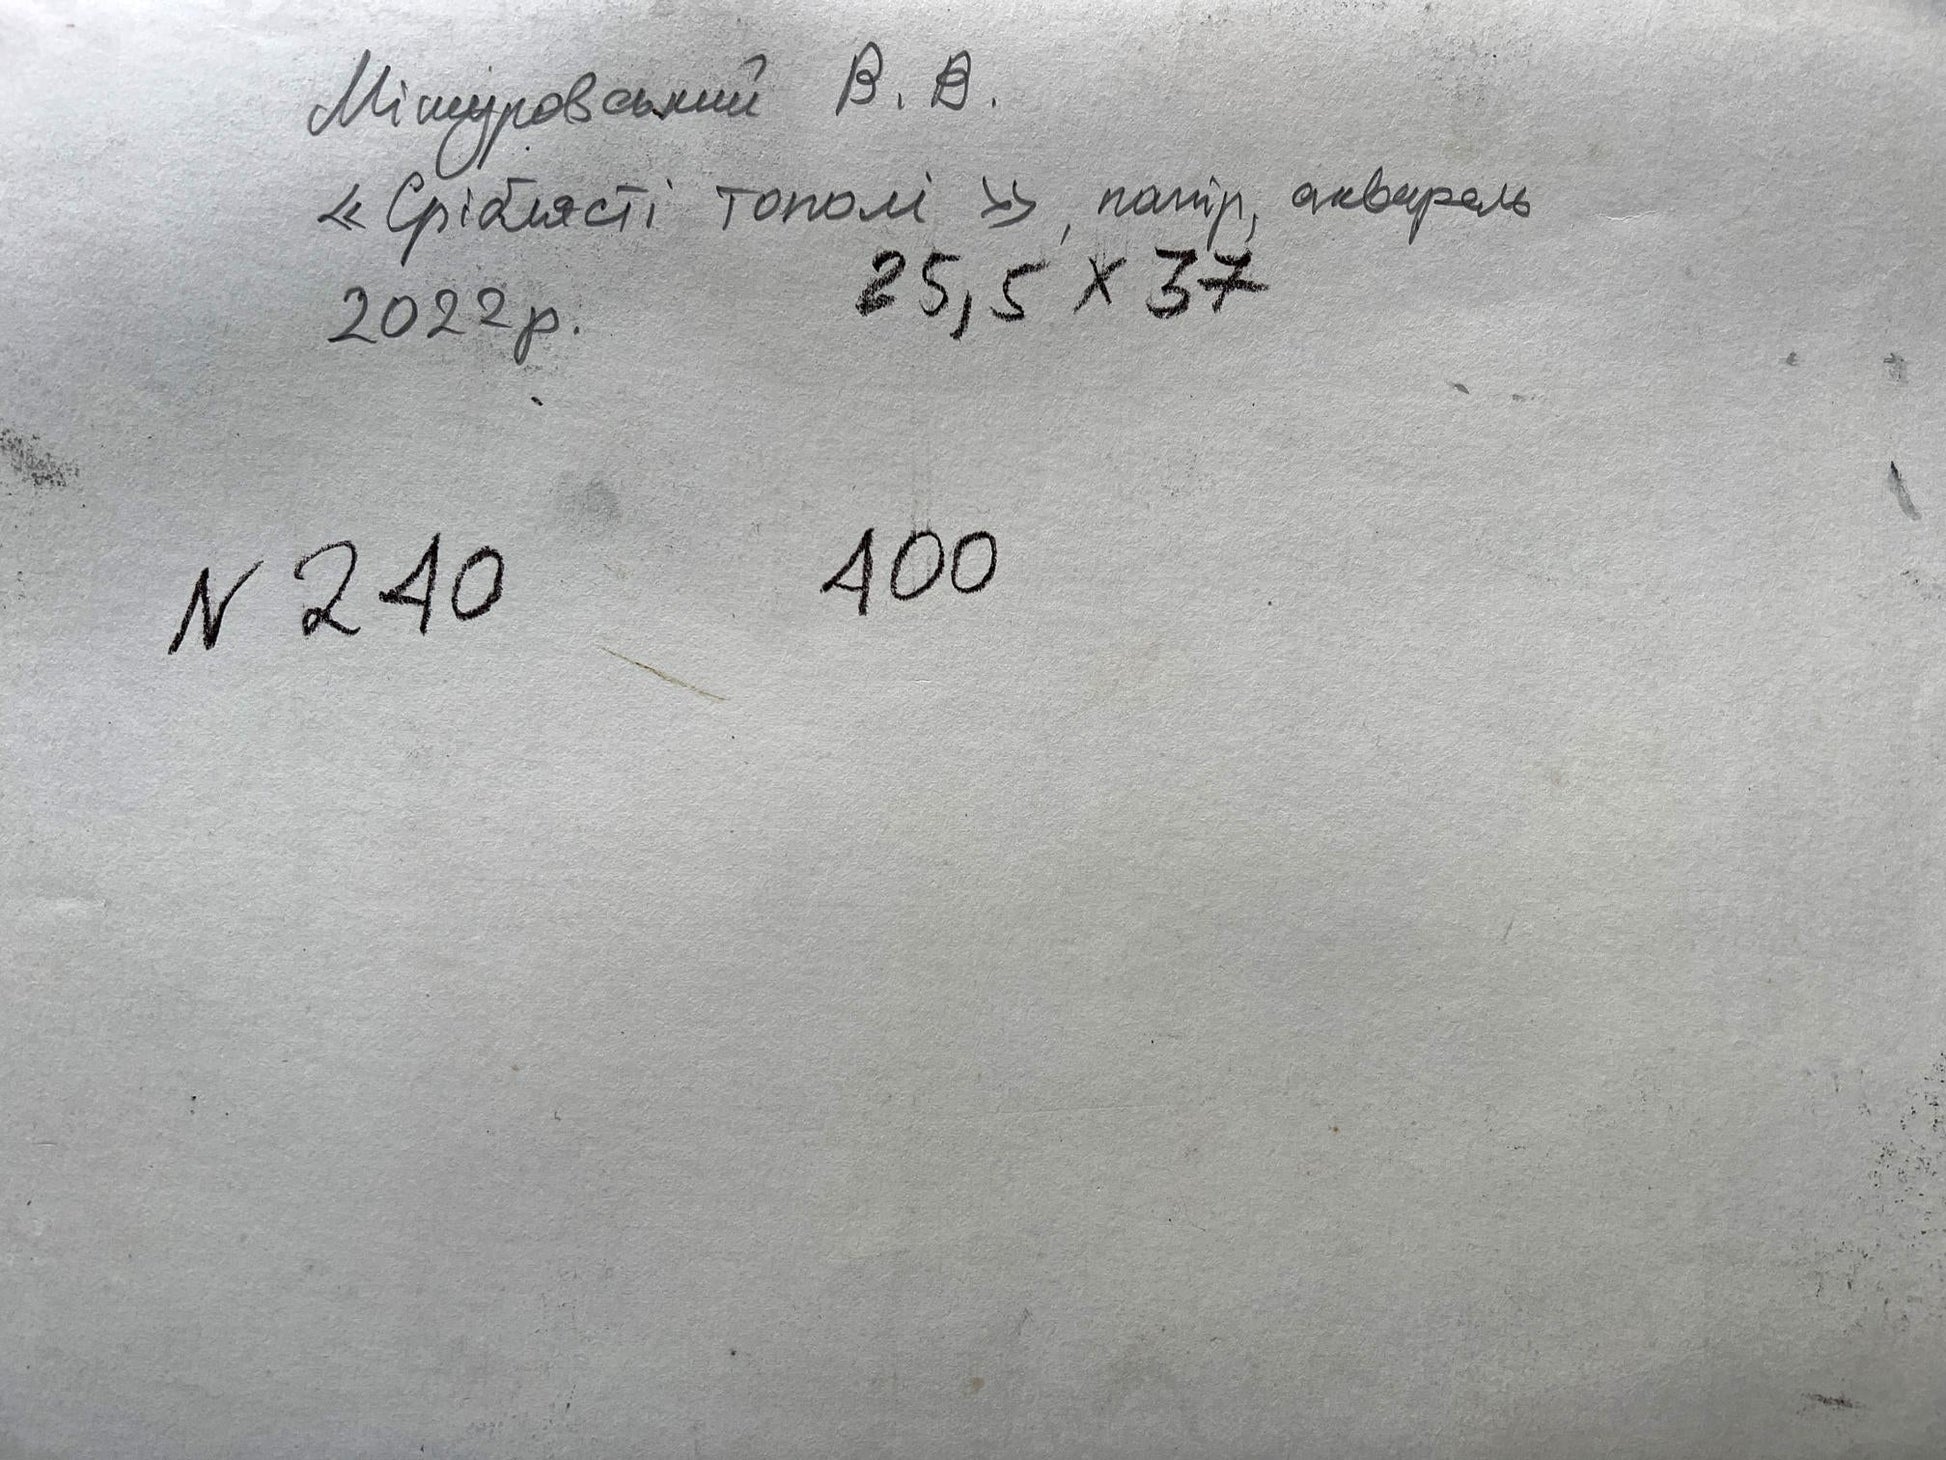 Мішуровський В. В.
«Сріблясті тополі», папір, акварель
25,5 х 37
2022р.
N 240 400